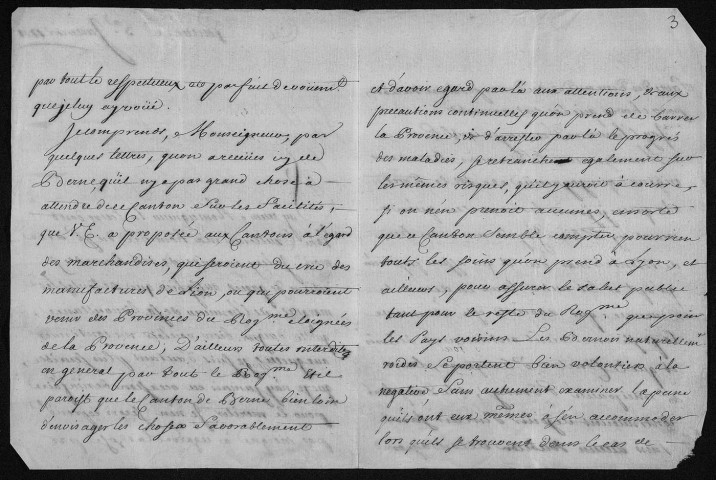 3
par tout le respectueux et parfait devoüem.t
que je luy ay voüé.
Je comprens, Monseigneur, par
quelques lettres, qu'on a receües icy de
Berne, qu'il n'y a pas grand chose à
attendre de ce Canton sur les facilités,
que V. E. a proposée aux Cantons à l'égard
des marchandises, qui seroient du cru des
manufactures de Lion, ou qui pourroient
venir des Provinces du Roy.me eloignées
de la Provence, D'ailleurs toutes interdites
en general par tout le Roy.me et il
paroist que le Canton de Berne bien loin
d'envisager les choses favorablement
et d'avoir egard par là aux attentions, et aux
precautions continuelles qu'on prend de barrer
la Provence, et d'arrester par là le progrés
des maladies, se retranche egalement sur
les mêmes risques, qu'il y auroit à courre,
si on n'en prenoit aucunes, ensorte
que ce Canton semble compter pour rien
touts les soins qu'on prend à Lyon, et
ailleurs, pour assurer le salut public
tant pour le reste du Roy.me que pour
les Pays voisins. Les Bernois naturellem.t
roides se portent bien volontiers à la
negative sans autrement examiner la peine
qu'ils ont eux mêmes à s'en accommoder
lors qu'ils se trouvent dans le cas de